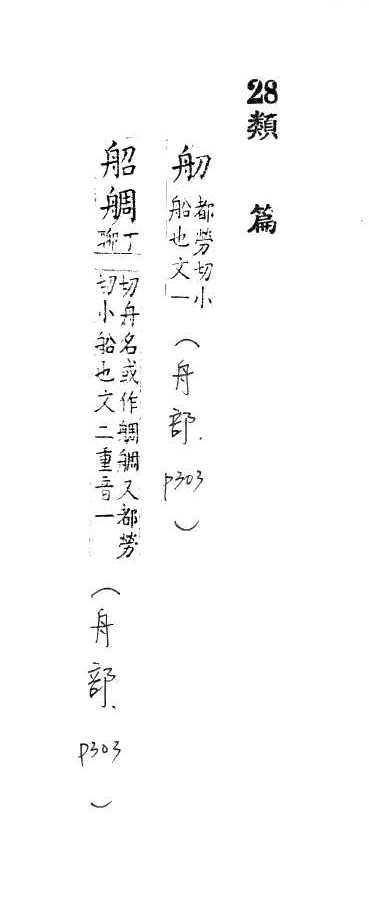 28類篇
舠都勞切小船也文一（舟部．p303）
丁聊切舟名或作又都勞切小船也文二重音一（舟部．p303）